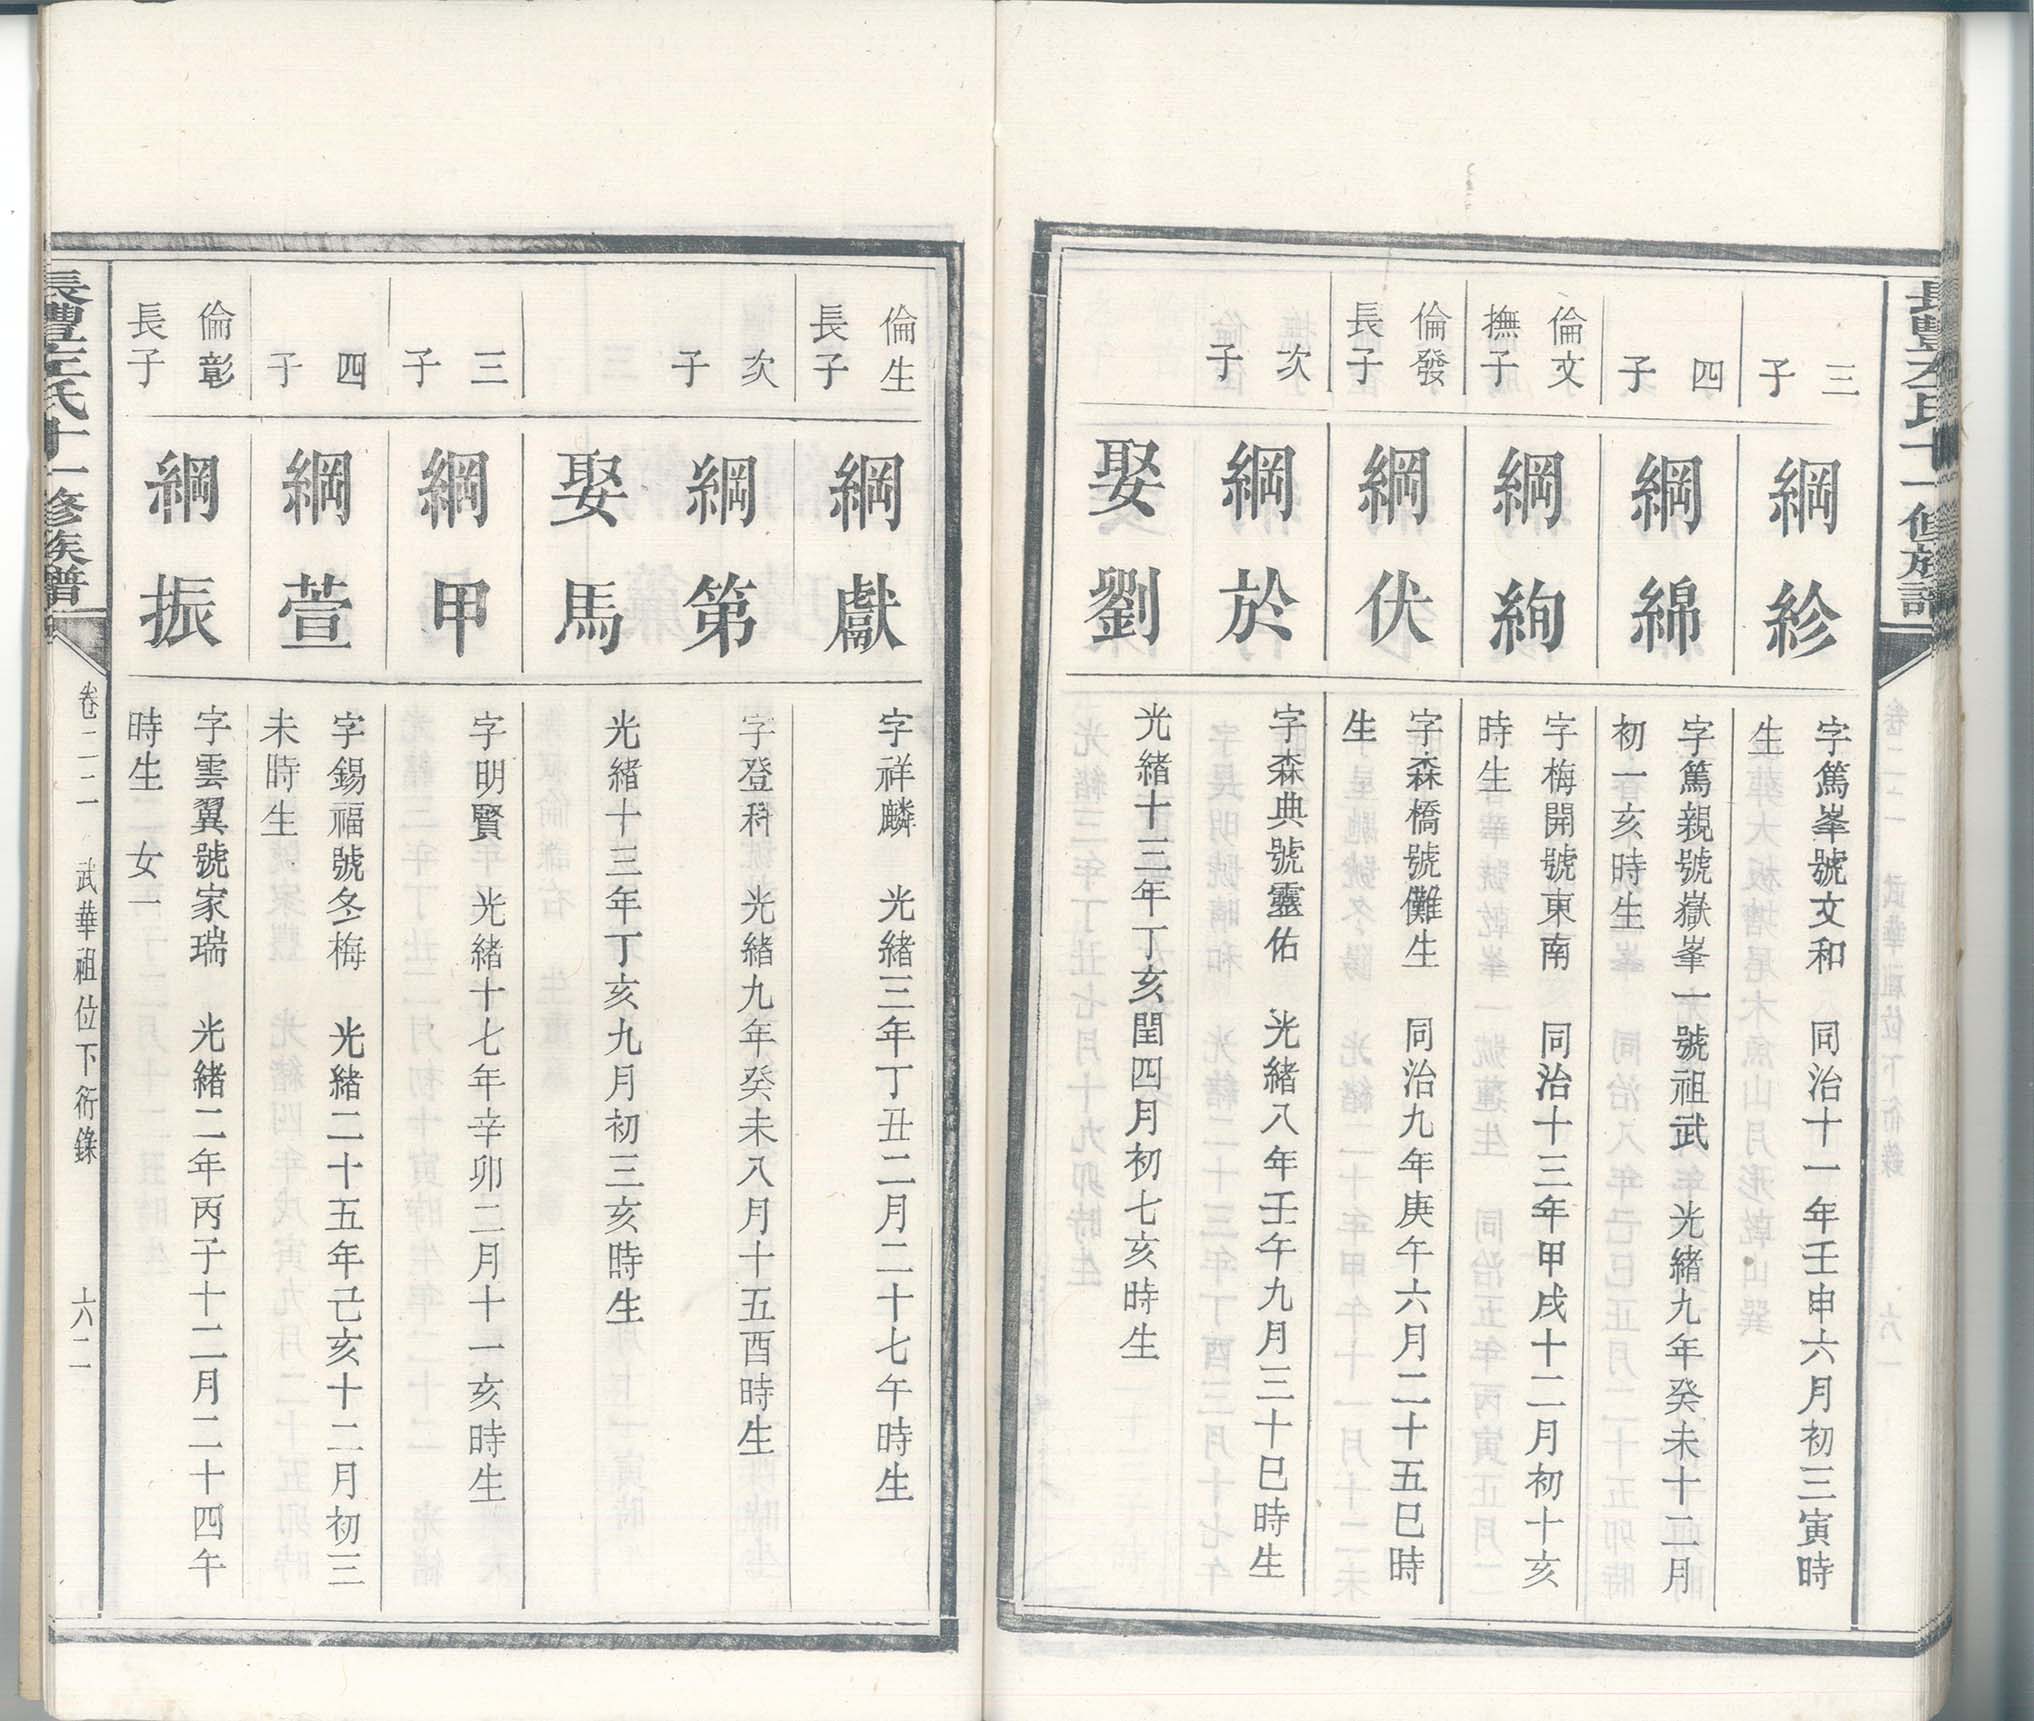 三
子
綱紾
字篤峯號文和　同治十一年壬申六月初三寅時
生
四
子
綱綿
字篤親號嶽峯一號祖武　光緒九年癸未十二月
初一亥時生
倫文
撫子
綱絢
字梅開號東南　同治十三年甲戌十二月初十亥
時生
倫發
長子
綱伏
字森橋號儺生　同治九年庚午六月二十五巳時
生
次
子
綱於
字森典號靈佑　光緒八年壬午九月三十巳時生
娶劉
光緒十三年丁亥閏四月初七亥時生
倫生
長子
綱獻
字祥麟　光緒三年丁丑二月二十七午時生
次
子
綱第
字登科　光緒九年癸未八月十五酉時生
娶馬
光緒十三年丁亥九月初三亥時生
三
子
綱甲
字明賢　光緒十七年辛卯二月十一亥時生
四
子
綱萱
字錫福號冬梅　光緒二十五年己亥十二月初三
未時生
倫彰
長子
綱振
字雲翼號家瑞　光緒二年丙子十二月二十四午
時生　女一
長豐左氏十一修族譜　卷二二　武華祖位下衍錄　六二